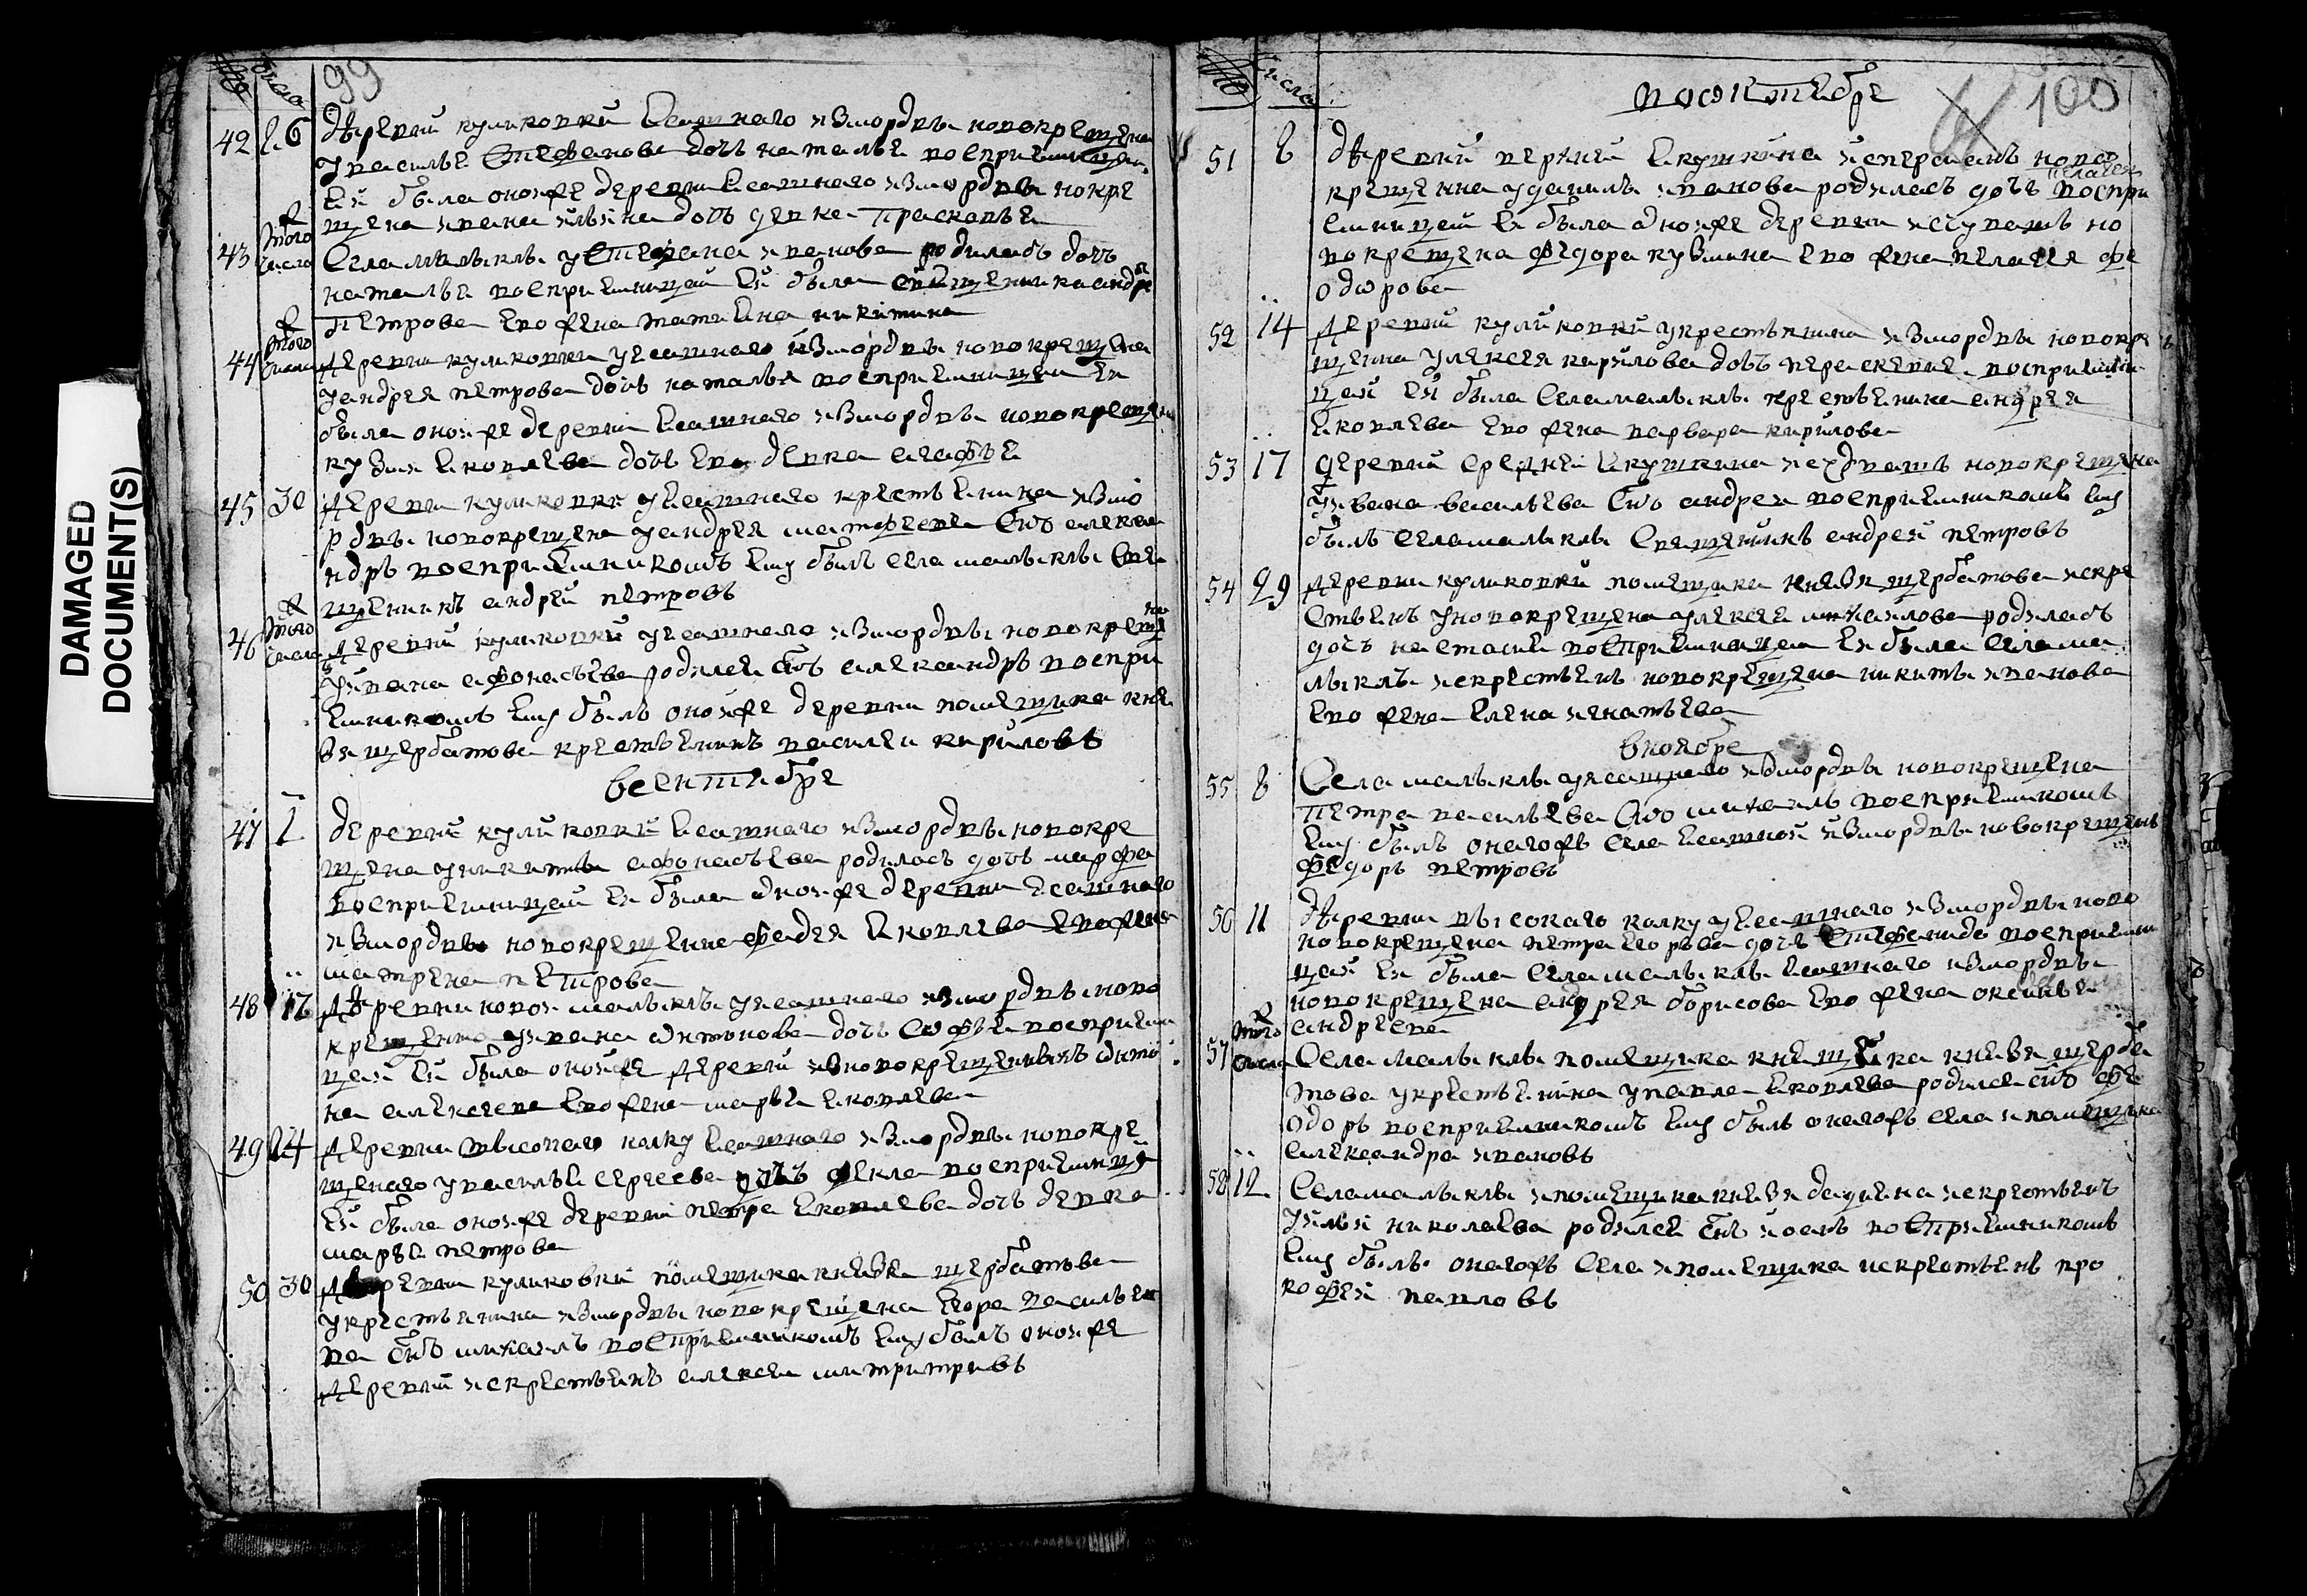 DAMAGED
DOCUMENT(S)
№ число 99
42 26 деревни куликовки ясашнаго измордвы новокрещена
у василья степанова дочь наталья восприемницей
ей была оной же деревни ясашнаго измордвы новокре
щена ивана дочь девка прасковья
43 того числа Села малыклы у степана иванова родилась дочь
наталья восприемницей ей была священника андре
петрова ево жена татияна никитина
44 того числа деревни куликовки уясашнаго измордвы новокрещена
уандрея петрова дочь наталья восприемницей ей
была оной же деревни ясашнаго измордвы новокрещен
кузмы яковлева дочь ево девка агафья
45 30 деревни куликовки уясашнаго крестьянина измо
рдвы новокрещена уандрея матфеева сынъ алекса
ндръ восприемникомъ ему былъ села малыклы свя
щенникъ андрей петровъ
46 того числа деревни куликовки уясашнаго измордвы новокрещена
уивана афонасьева родился сынъ александръ воспри
емникомъ ему былъ оной же деревни помещика кня
зя щербатова крестьянинъ василей кириловъ
всентябре
47 1 деревни куликовки ясашнаго измордвы новокре
щена уникиты афонасьева родилась дочь марфа
восприемницей ей была оной же деревни ясашнаго
измордвы новокрещена фадея яковлева ево жена
матрена петрова
48 12 деревни новой малыклы уясашнаго измордвы ново
крещена уивана антонова дочь софья восприемни
цей ей была оной же деревни изновокрещенныхъ анто
на алексеева ево жена марья яковлева
49 24 деревни высокаго колку ясашнаго измордвы новокре
щенаго увасилья сергеева дочь фекла восприемнице
ей была оной же деревни петра яковлева дочь девка
марья петрова
50 30 деревни куликовки помещика князя щербатова
укрестьянина измордвы новокрещена егора василье
ва сынъ михаилъ восприемникомъ ему былъ оной же
деревни искрестьянъ алексеи
№ числа 100
вооктебре
51 8 деревни верхней якушкина новo
крещенна уданилы иванова родилась дочь пелагея воспри
емницей ей была оной же деревни но
вокрещена федора кузмина ево жена пелагея фе
одорова
52 14 деревни куликовки укрестьянина измордвы новокре
щенна улексея кирилова дочь восприемни
цей ей была Села малыклы крестьянина андрея
яковлева ево жена варвара кирилова
53 17 деревни средней якушкина новокрещена
уивана васильева сынъ андрей восприемникомъ ему
былъ села малыклы священникъ андрей петровъ
54 29 деревни куликовки помещика князя щербатова искре
стьянъ уновокрещена улексея михаилова родилась
дочь настасья восприемницей ей была села ма
лыклы искрестьянъ новокрещена никиты иванова
ево жена елена игнатьева
вноябре
55 8 Села малыклы уясашнаго измордвы новокрещена
петра васильева сынъ михаилъ восприемникомъ
ему былъ оногожъ села ясашной измордвы новокрещенъ
федоръ петровъ
56 11 деревни высокаго колку уясашнаго измордвы ново
новокрещена петра егорова дочь степанида восприемни
цей ей была села малыклы ясашнаго измордвы
новокрещена андрея борисова ево жена оксинья
андреева
57 того числа Села малыклы помещика князя щерба
това укрестьянина упавла яковлева родился сынъ фе
одоръ восприемникомъ ему былъ оногожъ села ипомещика
александра ивановъ
58 12 Села малыклы ипомещика князя искрестьянъ
уильи николаева родился сынъ восприемникомъ
ему былъ оногожъ Села ипомещика искрестьянъ про
кофей павловъ